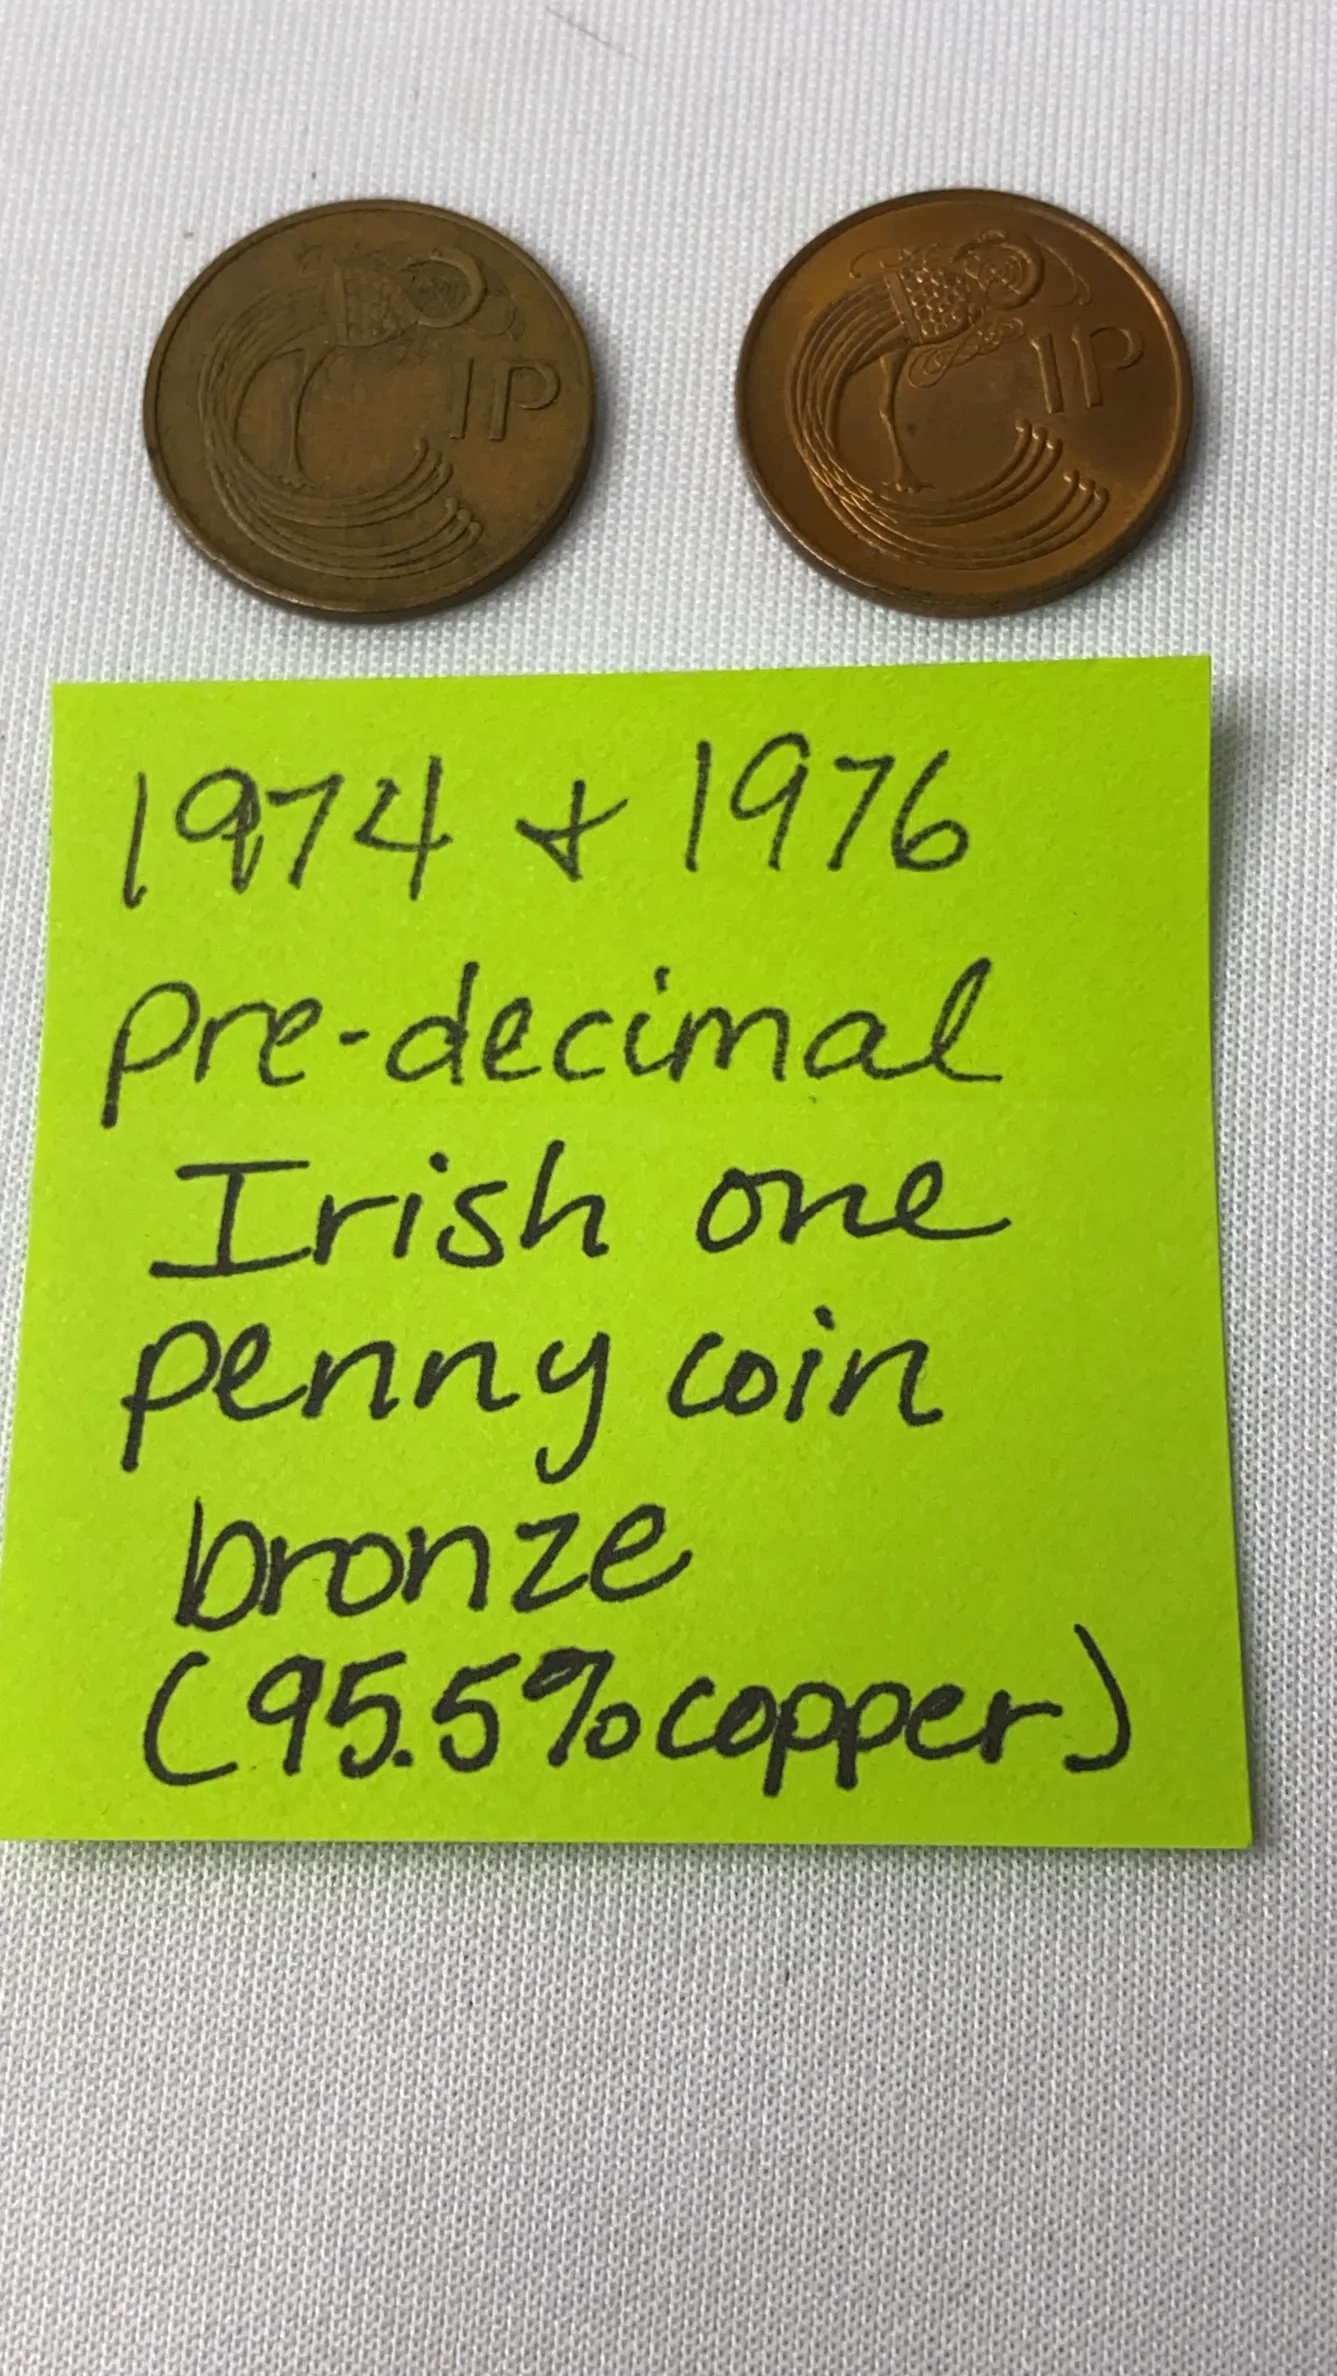 1P
1P
1974 + 1976
pre-decimal
Irish one
penny coin
bronze
(95.5% copper)